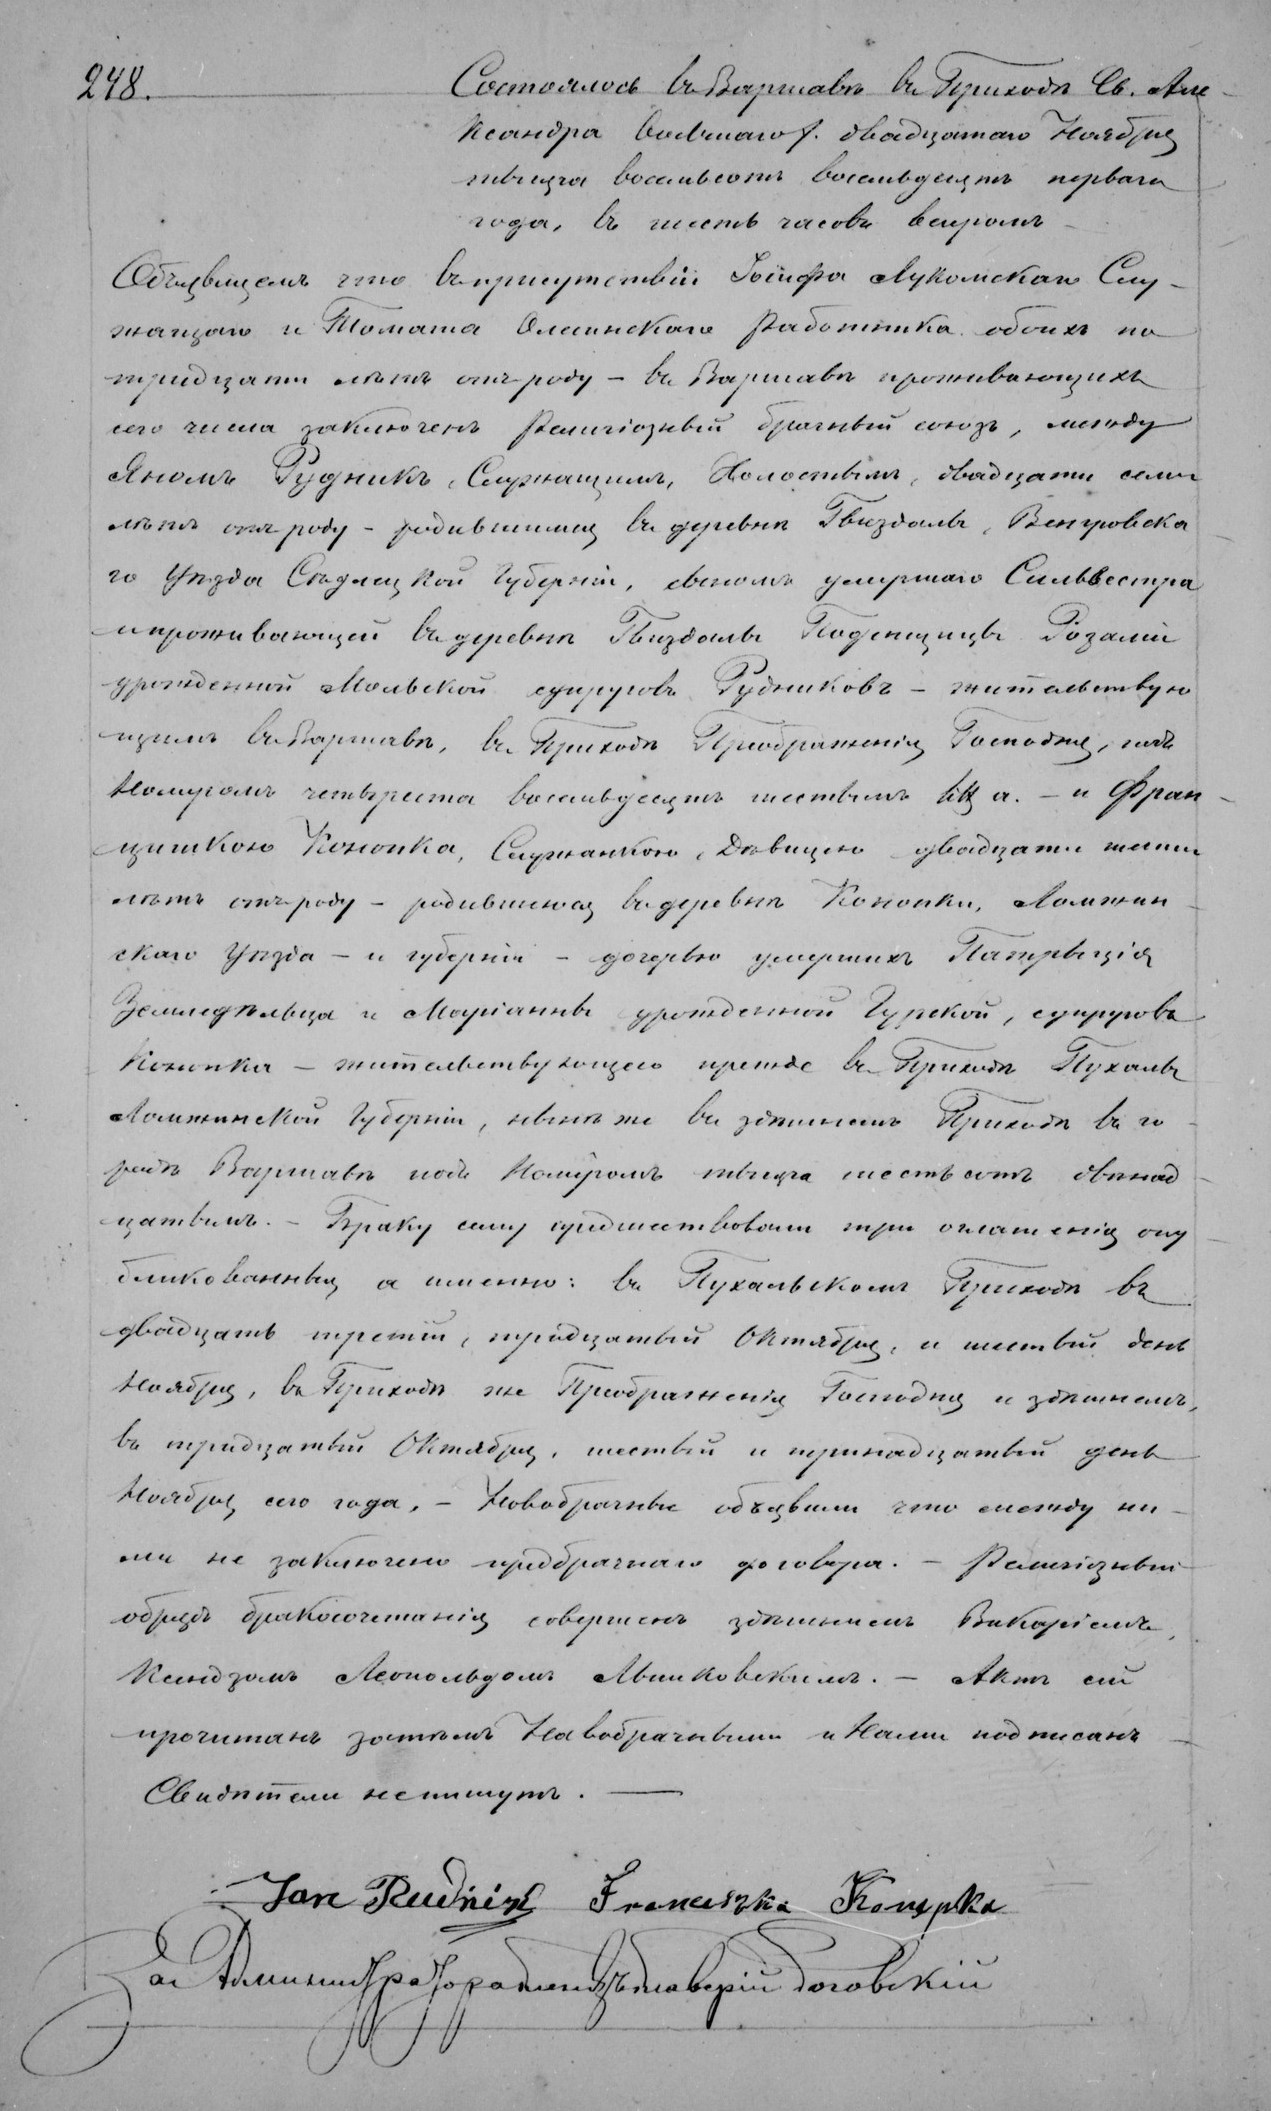 248. Состоялось въ Варшавѣ въ Приходѣ Св. Але-
ксандра двадцатаго Ноября
тысяча восемьсотъ восемьдесятъ перваго
года, въ шесть часовъ вечеромъ
Объявляемъ что въ присутствіи Іосифа Лукомскаго Слу-
жащаго и Томаша Олешинскаго Работника обоихъ по
тридцати лѣтъ отъ роду – въ Варшавѣ проживающихъ
сего числа заключенъ Религіозный брачный союзъ, между
Яномъ Рудникъ, Служащимъ, Холостымъ, двадцати семи
лѣтъ отъ роду – родившимся въ деревнѣ Гвиздалы, Венгровска
го Уѣзда Сѣдлецкой Губерніи, сыномъ умершаго Сильвестра
и проживающей въ деревнѣ Гвиздалы Поденщицы Розаліи
урожденной Мольской супруговъ Рудниковъ – жительствую
щимъ въ Варшавѣ, въ Приходѣ Преображенія Господня, подъ
Номеромъ четыреста восемьдесятъ шестымъ litt a. – и Фран-
цишкою Конопка, Служанкою, Дѣвицею двадцати шести
лѣтъ отъ роду – родившеюся въ деревнѣ Конопки, Ломжин-
скаго Уѣзда – и губерніи – дочерью умершихъ Патрыція
Земледѣльца и Маріанны урожденной Гурской, супруговъ
Конопка – жительствующею прежде въ Приходѣ Пухалы
Ломжинской Губерніи, нынѣ же въ здѣшнемъ Приходѣ въ го-
родѣ Варшавѣ подъ Номеромъ тысяча шестьсотъ двѣнад-
цатымъ. – Браку сему предшествовали три оглашенія опу
бликованныя а именно: въ Пухальскомъ Приходѣ въ
двадцать третій, тридцатый Октября, и шестый день
Ноября, въ Приходѣ же Преображенія Господня и здѣшнемъ,
въ тридцатый Октября, шестый и тринадцатый день
Ноября сего года. – Новобрачные объявили что между ни-
ми не заключено предбрачнаго договора. – Религіозный
обрядъ бракосочетанія совершенъ здѣшнимъ Викаріемъ,
Ксендзомъ Леопольдомъ Лышковскимъ. – Актъ сей
прочитанъ затѣмъ Новобрачными и Нами подписанъ
Свидѣтели не пишутъ. –
Jan Rudnik Franciszka Konopka
За Администратора